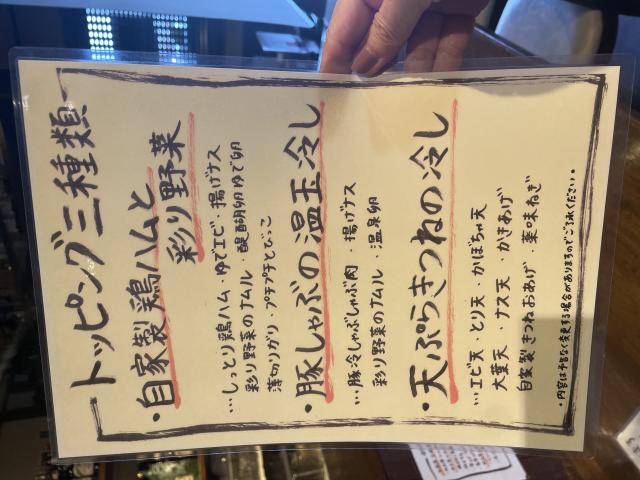 トッピング三種類
・自家製鶏ハムと
彩り野菜
…しっとり鶏ハム・ゆでエビ・揚げナス
彩り野菜のナムル・醍醐卵ゆで卵
薄切りガリ・プチプチとびっこ
・豚しゃぶの温玉冷し
…豚冷しゃぶしゃぶ肉・揚げナス
彩り野菜のナムル・温泉卵
・天ぷらきつねの冷し
…エビ天・とり天・かぼちゃ天
大葉天・ナス天・かきあげ
自家製きつねおあげ・薬味ねぎ
・内容は予告なく変更する場合がありますのでご了承ください。